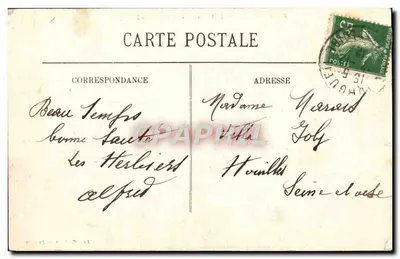 CARTE POSTALE
CORRESPONDANCE
ADRESSE
Beau Temps
bonne Santé
Les Herbiers
Alfred
Madame Marais
Villa Joly
Houilles
Seine et Oise